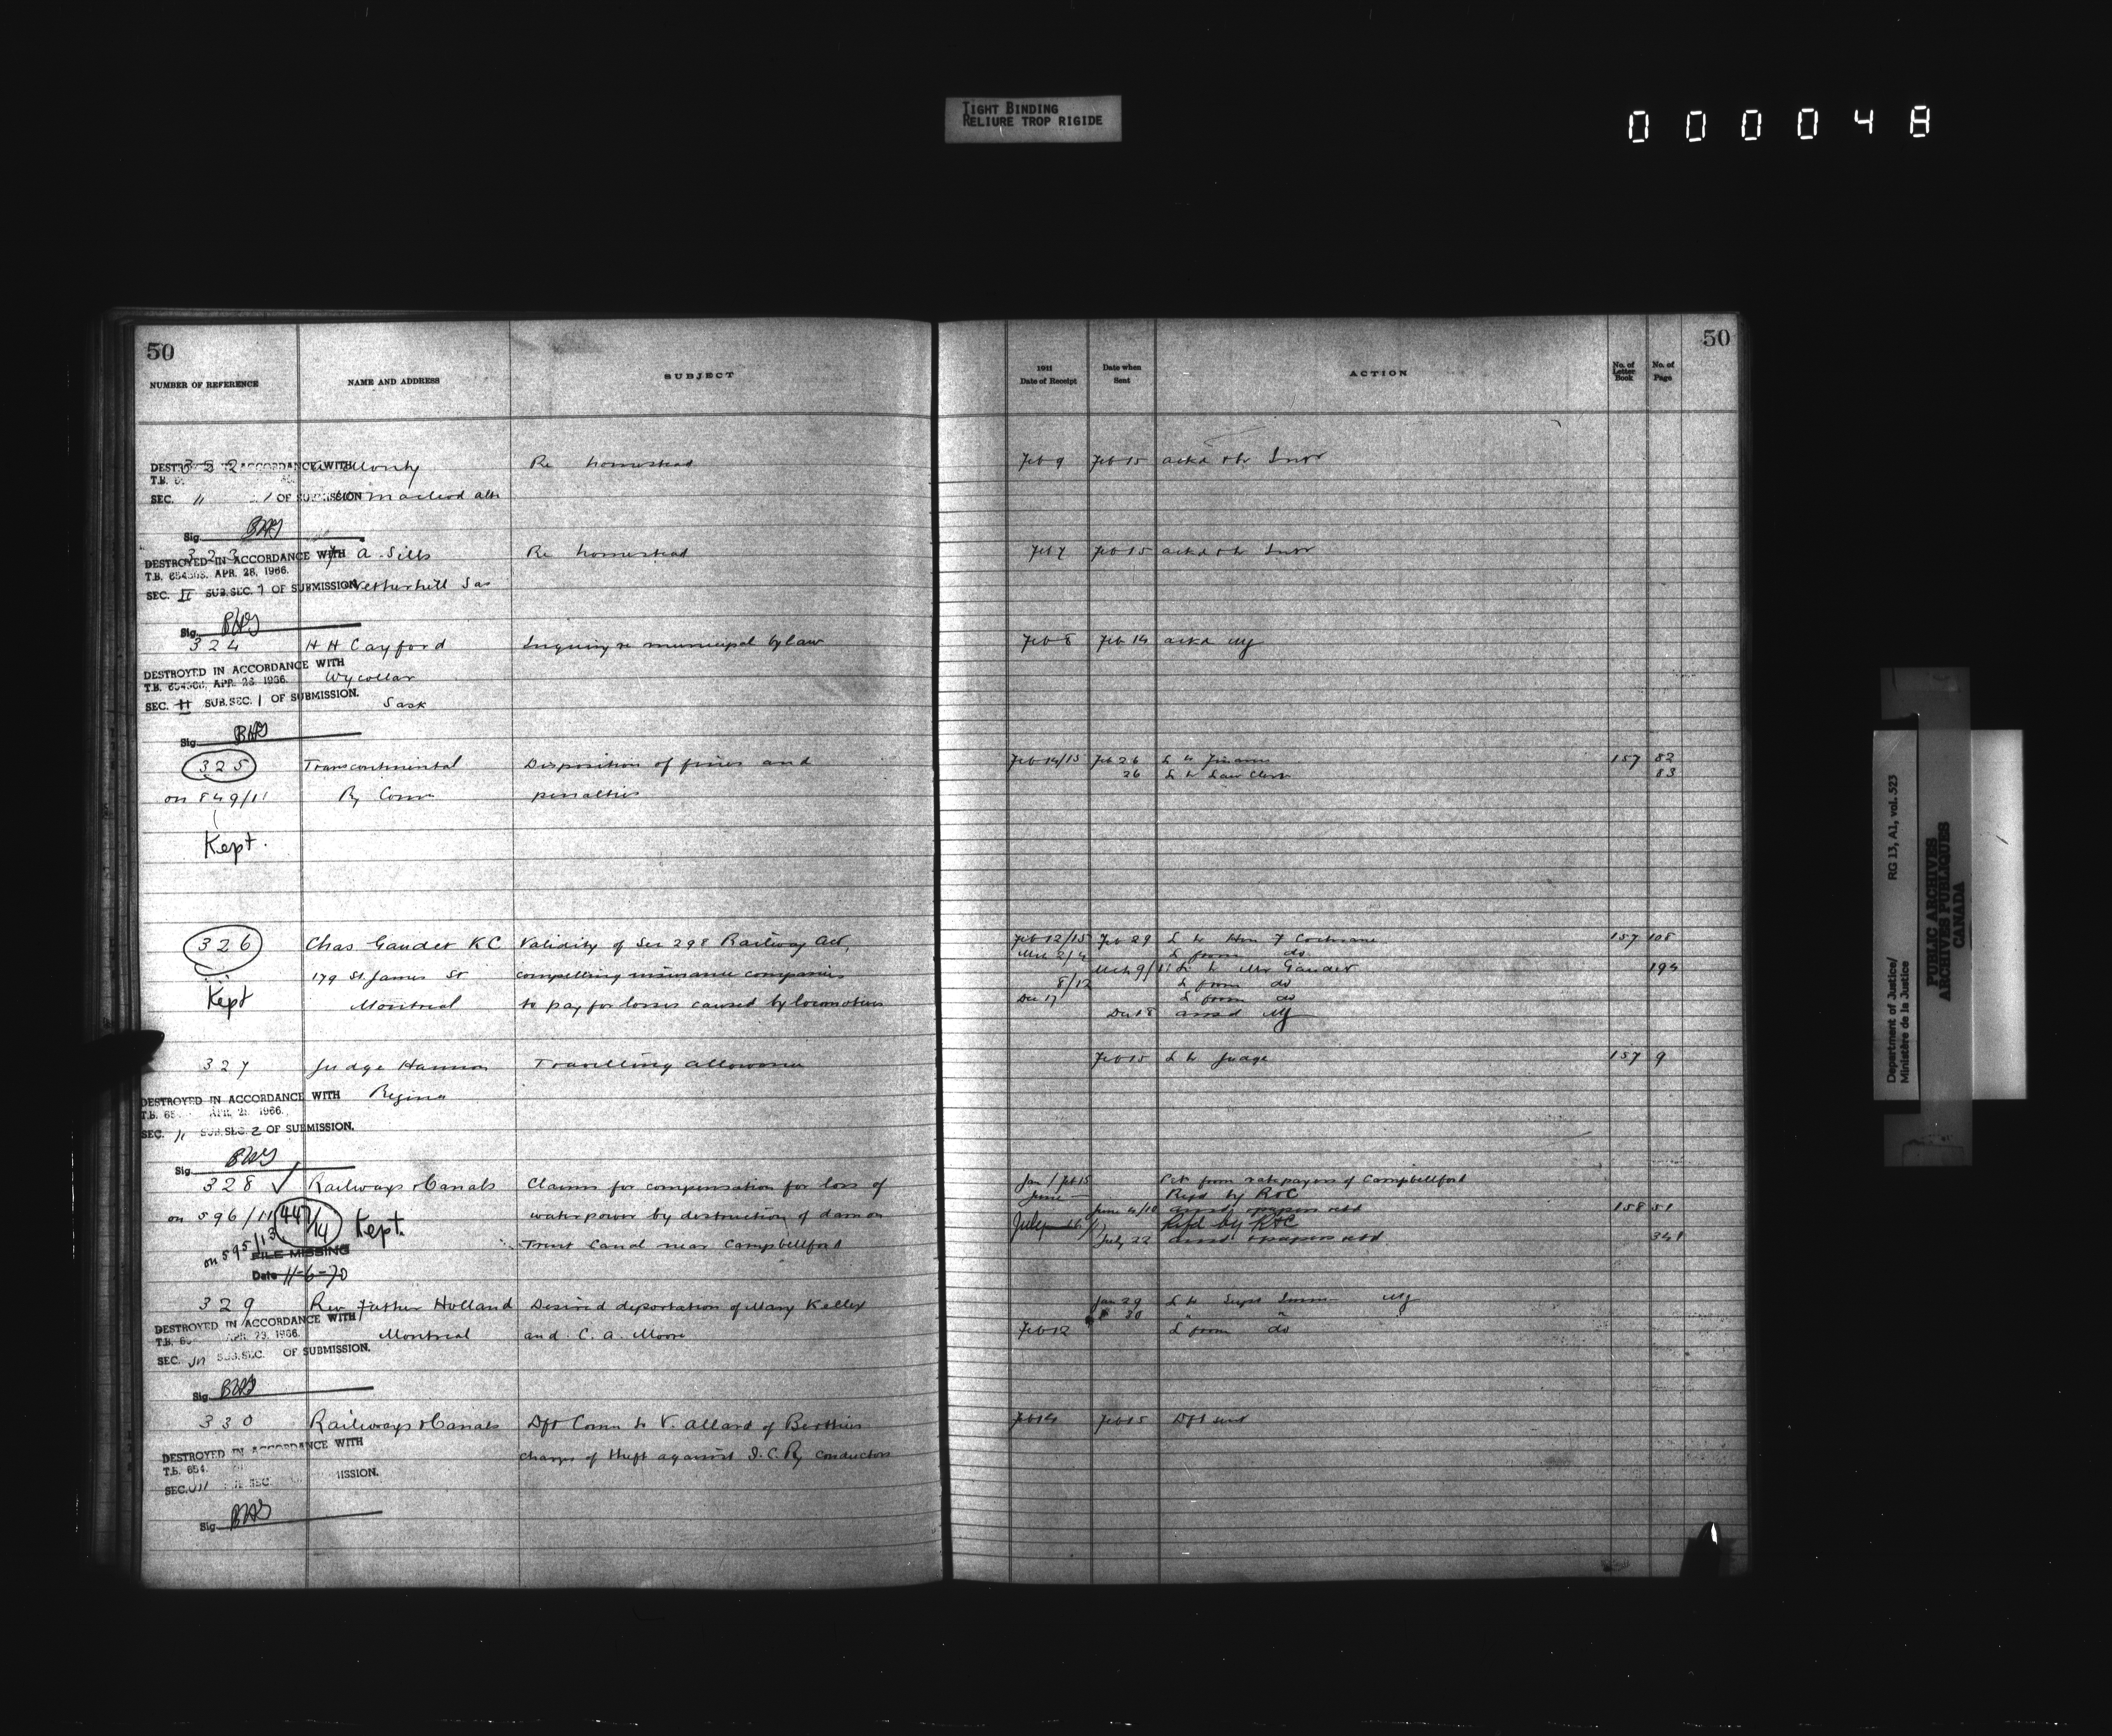 TIGHT BINDING
RELIURE TROP RIGIDE
000048
50
50
NUMBER OF REFERENCE NAME AND ADDRESS SUBJECT 1911 Date of Receipt Date when Sent ACTION No. of Letter Book No. of Page
322 Re homestead Feb 9 Feb 15 ackd & to Intr
DESTROYED IN ACCORDANCE WITH
T.B.
SEC. 11 OF SUBMISSION Macleod Alta
Sig. BHS
323 A. Sills Re homestead Feb 7 Feb 15 ackd & to Intr
DESTROYED IN ACCORDANCE WITH
T.B. 654303, APR. 28, 1966.
SEC. II SUB.SEC. 1 OF SUBMISSION Netherhill Sas
Sig. BHS
324 H H Cayford Inquiry re municipal by law Feb 8 Feb 14 ackd
DESTROYED IN ACCORDANCE WITH
T.B. APR. 28, 1966. Wycollar
SEC. II SUB.SEC. 1 OF SUBMISSION. Sask
Sig. BHS
325 Transcontinental Disposition of fines and Feb 14/15 Feb 26 L to Finance 157 82
26 L to Law Clerk 83
on 849/11 Ry Comn penalties
Kept.
326 Chas Gaudet KC Validity of Sec 298 Railway Act, Feb 12/15 Feb 29 L to Hon F Cochrane 157 108
Mch 2/4 L from do
179 St. James St compelling insurance companies Mch 9/11 L to Mr Gaudet 194
8/12 L from do
Kept Montreal to pay for losses caused by locomotives Dec 17 L from do
Dec 18 ansd
327 Judge Hannon Travelling allowance Feb 15 L to Judge 157 9
DESTROYED IN ACCORDANCE WITH Regina
T.B. 65 APR. 28, 1966.
SEC. 11 SUB.SEC. 2 OF SUBMISSION.
Sig. BHS
328 ✓ Railways & Canals Claims for compensation for loss of Jan 1/Feb 15 Pet from ratepayers of Campbellford
June Refd by R&C
on 596/11 447/14 Kept. water power by destruction of dam on June 4/10 ansd, papers retd 158 51
July 16 Refd by R&C
on 595/13 Trent Canal near Campbellford July 22 ansd & papers retd 341
FILE MISSING
Date 11-6-70
329 Rev Father Holland Desired deportation of Mary Kelley Jan 29 L to Supt Immn
30 "
DESTROYED IN ACCORDANCE WITH
T.B. APR. 23, 1966. Montreal and C. A. Moore Feb 12 L from do
SEC. SUB.SEC. OF SUBMISSION.
Sig. BHS
330 Railways & Canals Dft Comn to V. Allard of Berthier Feb 14 Feb 15 Dft sent
DESTROYED IN ACCORDANCE WITH charge of theft against I.C.Ry conductor
T.B. 654
SEC. SUB SEC. MISSION.
Sig. BHS
Department of Justice/ RG 13, A1, vol. 523
Ministère de la Justice
PUBLIC ARCHIVES
ARCHIVES PUBLIQUES
CANADA